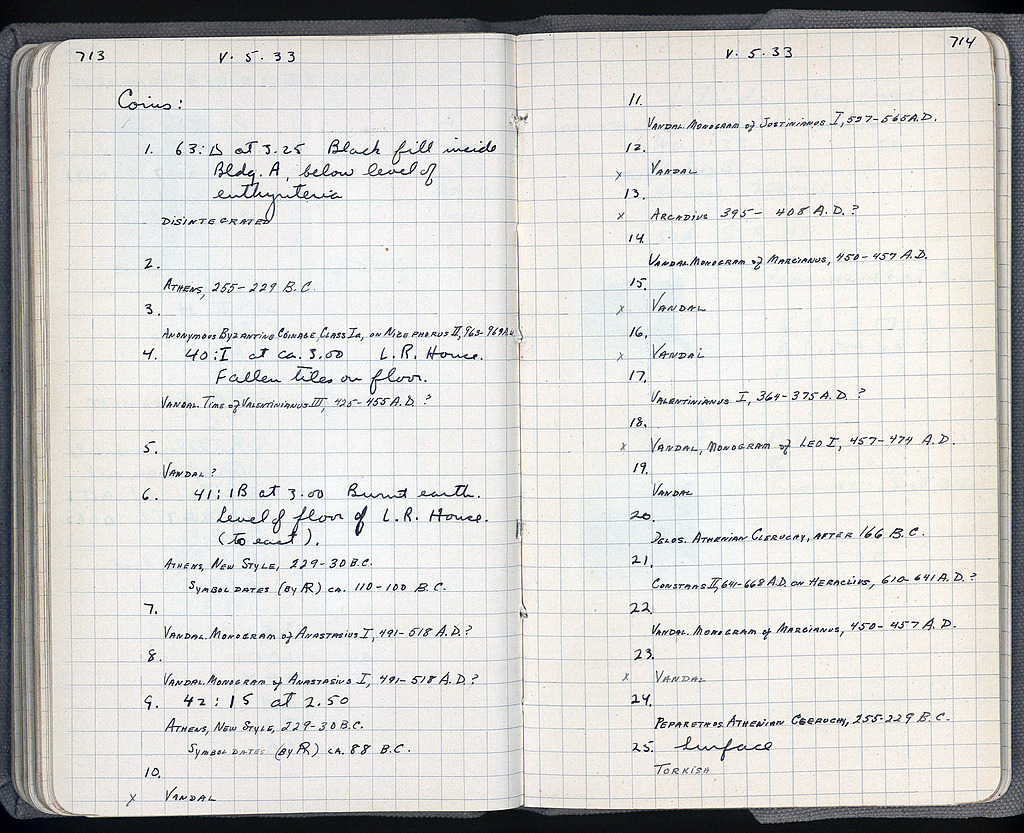 713
V. 5. 33
Coins:
1. 63:D at 3.25 Black fill inside
Bldg. A, below level of
euthynteria
DISINTEGRATED
2.
ATHENS, 255-229 B.C.
3.
ANONYMOUS BYZANTINE COINAGE, CLASS Ia, ON NICEPHORUS II, 963-969 A.D.
4. 40:I at ca. 3.00 L.R. House.
Fallen tiles on floor.
VANDAL. TIME of VALENTINIANUS III, 425-455 A.D. ?
5.
VANDAL ?
6. 41:IB at 3.00 Burnt earth.
Level of floor of L.R. House.
(to east).
ATHENS, NEW STYLE, 229-30 B.C.
SYMBOL DATES (BY Æ) CA. 110-100 B.C.
7.
VANDAL. MONOGRAM of ANASTASIUS I, 491-518 A.D. ?
8.
VANDAL. MONOGRAM of ANASTASIUS I, 491-518 A.D. ?
9. 42:15 at 2.50
ATHENS, NEW STYLE, 229-30 B.C.
SYMBOL DATES (BY Æ) CA. 88 B.C.
10.
x VANDAL
714
V. 5. 33
11.
VANDAL. MONOGRAM of JUSTINIANUS I, 527-565 A.D.
12.
x VANDAL
13.
x ARCADIUS 395- 408 A.D. ?
14.
VANDAL. MONOGRAM of MARCIANUS, 450-457 A.D.
15.
x VANDAL
16.
x VANDAL
17.
VALENTINIANUS I, 364-375 A.D. ?
18.
x VANDAL, MONOGRAM of LEO I, 457-474 A.D.
19.
VANDAL
20.
DELOS. ATHENIAN CLERUCHY, AFTER 166 B.C.
21.
CONSTANS II, 641-668 A.D. ON HERACLIUS, 610-641 A.D. ?
22.
VANDAL. MONOGRAM of MARCIANUS, 450-457 A.D.
23.
x VANDAL
24.
PEPARETHOS. ATHENIAN CLERUCHY, 255-229 B.C.
25. Surface
TURKISH